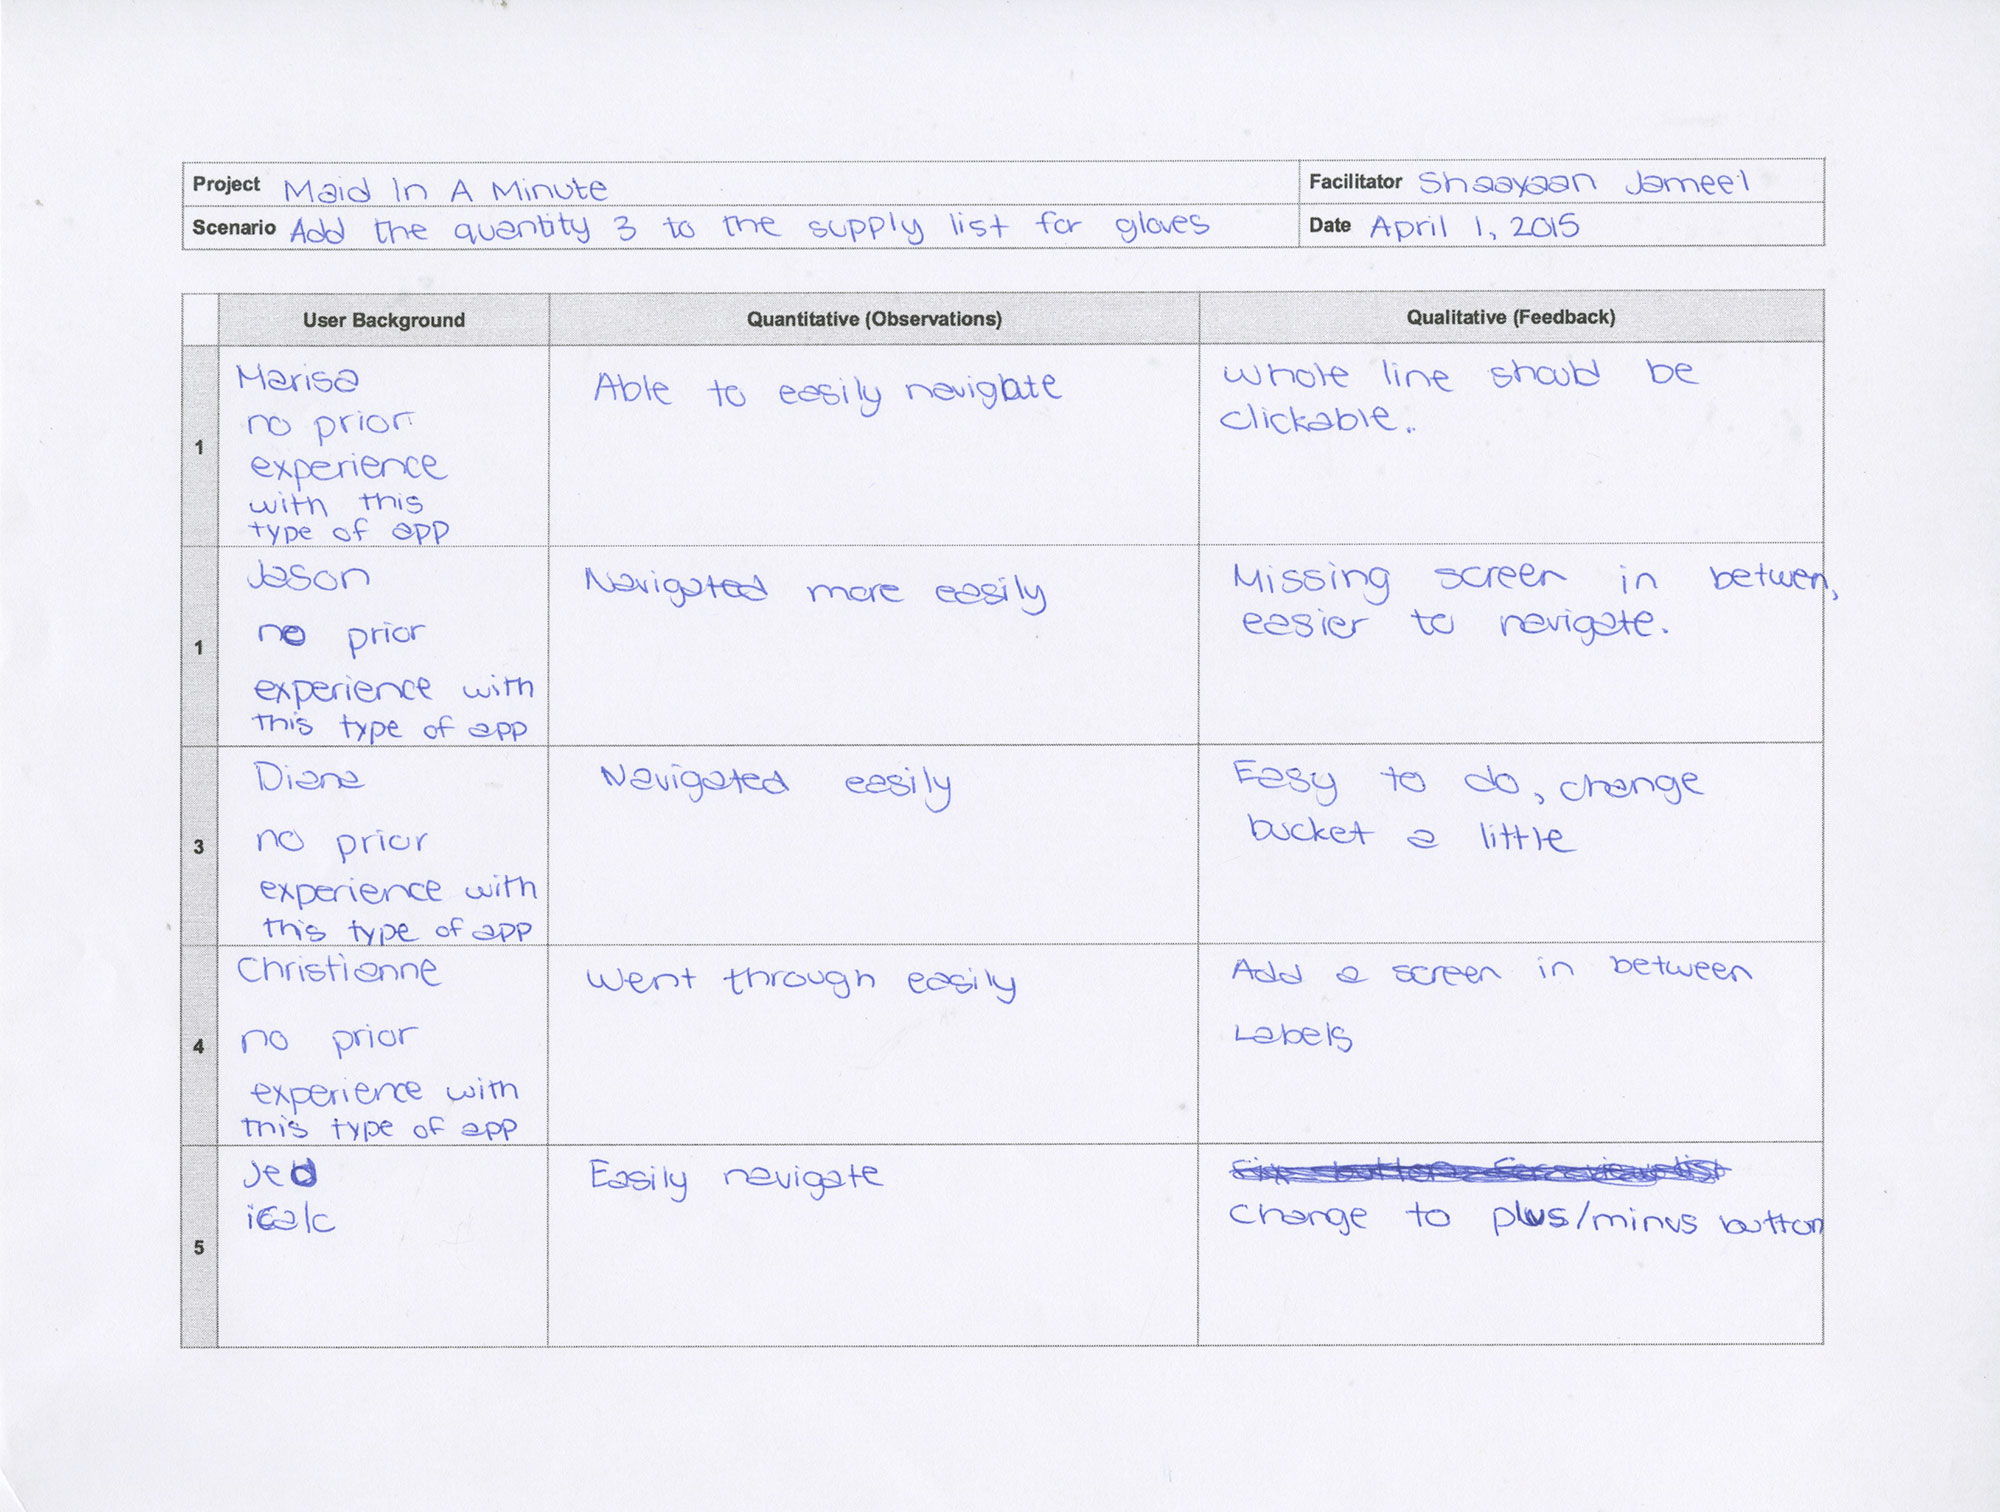 Project Maid In A Minute
Facilitator Shaayaan Jameel
Scenario Add the quantity 3 to the supply list for gloves
Date April 1, 2015
User Background
Quantitative (Observations)
Qualitative (Feedback)
1
Marisa
no prior
experience
with this
type of app
Able to easily navigate
Whole line should be
clickable.
1
Jason
no prior
experience with
this type of app
Navigated more easily
Missing screen in betwen,
easier to navigate.
3
Diana
no prior
experience with
this type of app
Navigated easily
Easy to do, change
bucket a little
4
Christianne
no prior
experience with
this type of app
Went through easily
Add a screen in between
Labels
5
Jed
Easily navigate
change to plus/minus button